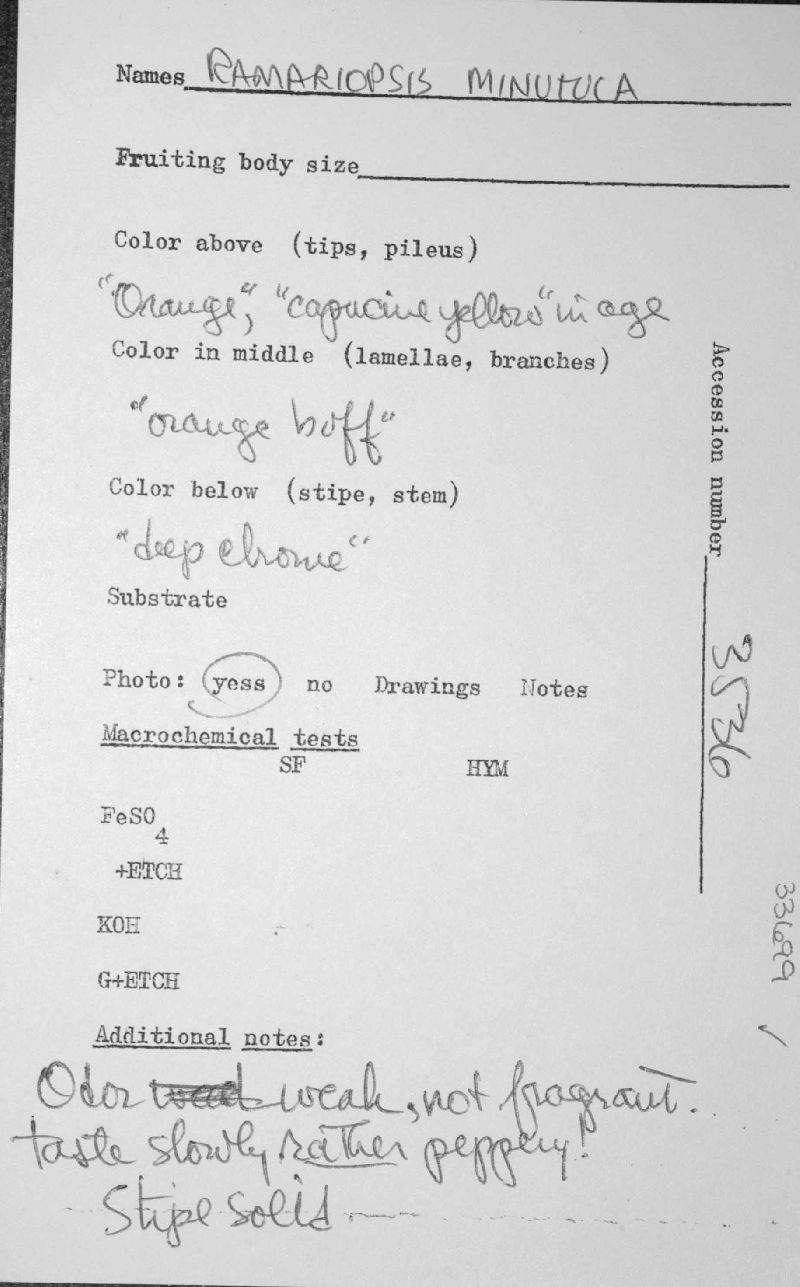 Names RAMARIOPSIS MINUTULA
Fruiting body size
Color above (tips, pileus)
"Orange", "capucine yellow" in age
Color in middle (lamellae, branches)
"orange buff"
Color below (stipe, stem)
"deep chrome"
Substrate
Photo: yess no Drawings Notes
Macrochemical tests
SF HYM
FeSO4
+ETCH
KOH
G+ETCH
Additional notes:
Odor weak, not fragrant.
taste slowly rather peppery!
Stipe solid.
Accession number 3536
33699